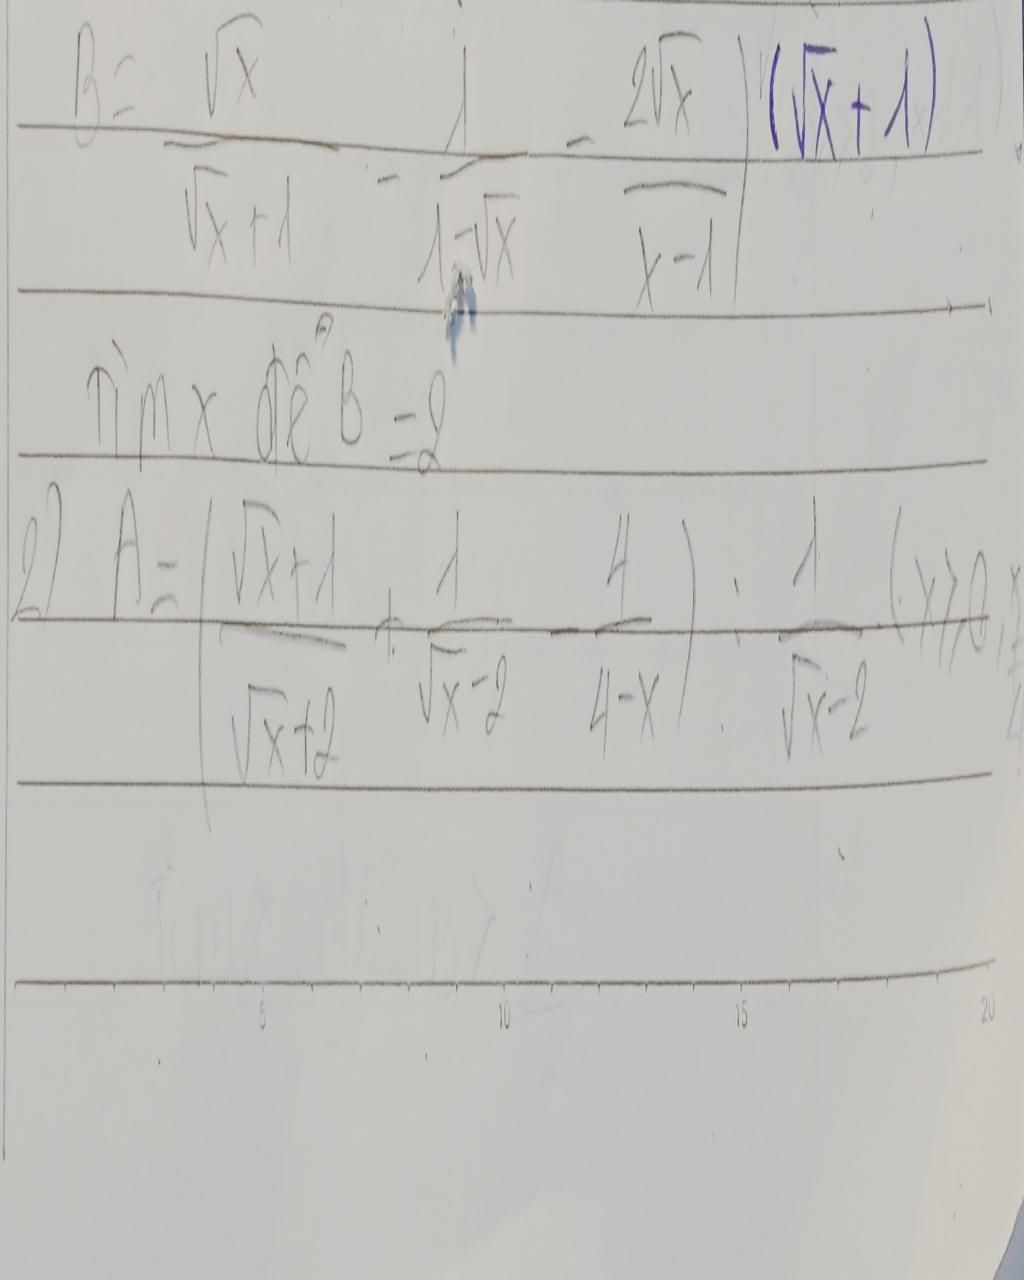 B = √x/(√x+1) - 1/(1-√x) - 2√x/(x-1) ) (√x+1)
Tìm x để B = 2
2) A = ( (√x+1)/(√x+2) + 1/(√x-2) - 4/(4-x) ) : 1/(√x-2) (x≥0, x≠4
5 10 15 20